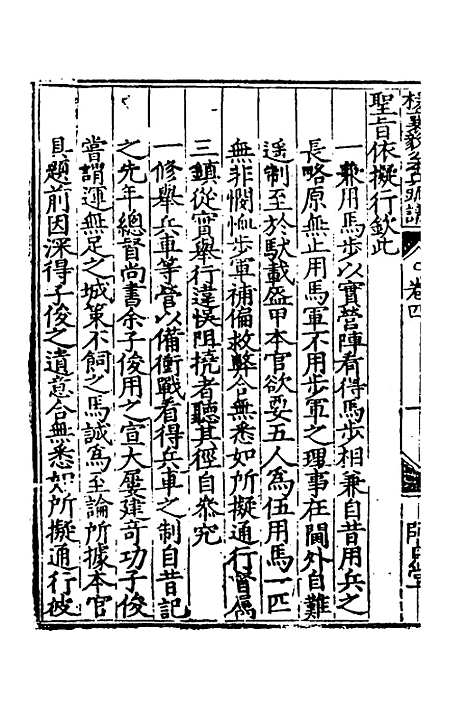 聖旨依擬行欽此
一兼用馬步以實營陣看得馬步相兼自昔用兵之
長略原無止用馬軍不用步軍之理事在閫外自難
遥制至於馱載盔甲本官欲要五人為伍用馬一匹
無非憫恤步軍補偏救弊合無悉如所擬通行督屬
三鎮從實舉行違悞阻撓者聽其徑自叅究
一修舉兵車等營以備衝戰看得兵車之制自昔記
之先年總督尚書余子俊用之宣大屢建竒功子俊
嘗謂運無足之城策不飼之馬誠為至論所據本官
具題前因深得子俊之遺意合無悉如所擬通行彼
卷四